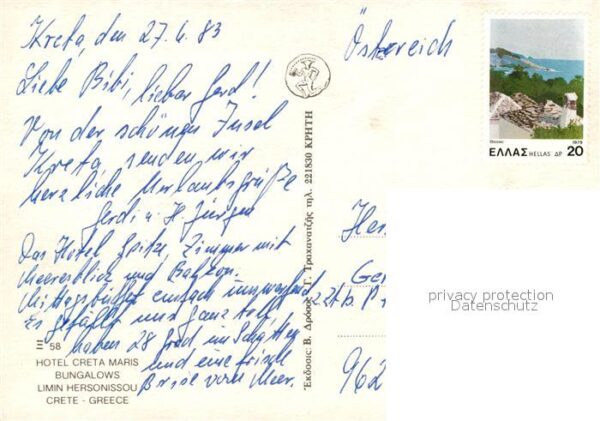 Kreta, den 27.6.83
Liebe Bibi, lieber Gerd!
Von der schönen Insel
Kreta, senden wir
herzliche Urlaubsgrüße
Gerdi u. H. Jürgen
Das Hotel Spitze, Zimmer mit
Meeresblick und Balkon.
Mittagsbüffet einfach
Es gefällt uns ganz toll
haben 28 Grad im Schatten
und eine frische
Brise vom Meer.
III 58
HOTEL CRETA MARIS
BUNGALOWS
LIMIN HERSONISSOU
CRETE - GREECE
Ἔκδοσις: Β. Δρόσος - Γ. Τρακανατζῆς τηλ. 221830 ΚΡΗΤΗ
Österreich
1979
ΕΛΛΑΣ HELLAS ΔΡ 20
962
privacy protection
Datenschutz